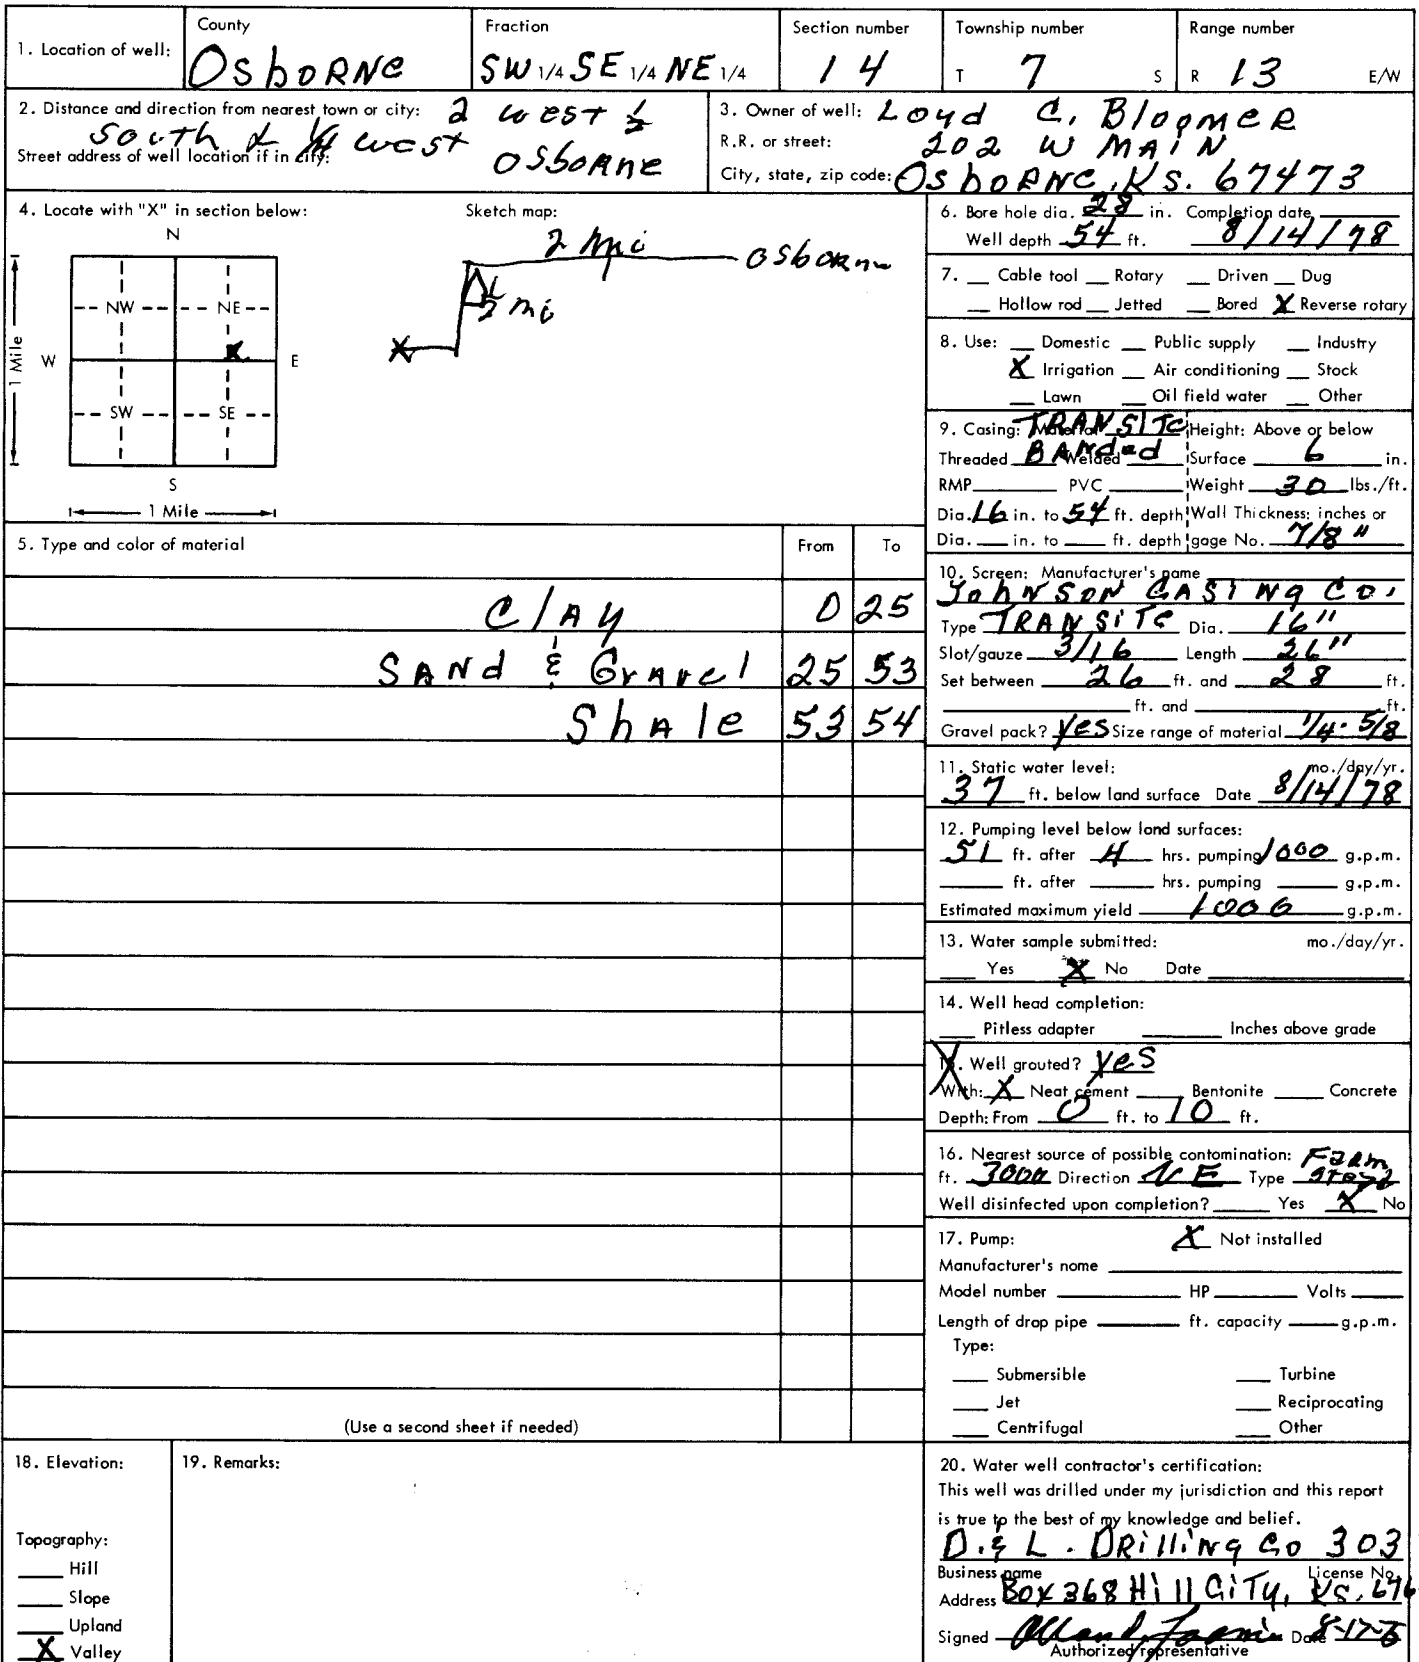 1. Location of well:
County
Osborne
Fraction
SW 1/4 SE 1/4 NE 1/4
Section number
14
Township number
T 7 S
Range number
R 13 E/W
2. Distance and direction from nearest town or city: 2 west 1/2
South & 1/4 west
Street address of well location if in city: Osborne
3. Owner of well: Loyd C. Bloomer
R.R. or street: 202 W MAIN
City, state, zip code: Osborne, Ks. 67473
4. Locate with "X" in section below:
N
NW NE
W X E
SW SE
S
1 Mile
1 Mile
Sketch map:
2 mi Osborne
1/2 mi
X
5. Type and color of material From To
Clay 0 25
Sand & Gravel 25 53
Shale 53 54
(Use a second sheet if needed)
6. Bore hole dia. 28 in. Completion date
Well depth 54 ft. 8/14/78
7. __ Cable tool __ Rotary __ Driven __ Dug
__ Hollow rod __ Jetted __ Bored X Reverse rotary
8. Use: __ Domestic __ Public supply __ Industry
X Irrigation __ Air conditioning __ Stock
__ Lawn __ Oil field water __ Other
9. Casing: Material TRANSITE Height: Above or below
Threaded Banded Welded Surface 6 in.
RMP PVC Weight 30 lbs./ft.
Dia. 16 in. to 54 ft. depth Wall Thickness: inches or
Dia. __ in. to __ ft. depth gage No. 7/8"
10. Screen: Manufacturer's name
Johnson Casing Co.
Type TRANSITE Dia. 16"
Slot/gauze 3/16 Length 26"
Set between 26 ft. and 28 ft.
ft. and ft.
Gravel pack? Yes Size range of material 1/4 - 5/8
11. Static water level: mo./day/yr.
37 ft. below land surface Date 8/14/78
12. Pumping level below land surfaces:
51 ft. after 4 hrs. pumping 1000 g.p.m.
ft. after hrs. pumping g.p.m.
Estimated maximum yield 1000 g.p.m.
13. Water sample submitted: mo./day/yr.
__ Yes X No Date
14. Well head completion:
__ Pitless adapter __ Inches above grade
15. Well grouted? Yes
With: X Neat cement __ Bentonite __ Concrete
Depth: From 0 ft. to 10 ft.
16. Nearest source of possible contomination: Farm
ft. 3000 Direction NE Type
Well disinfected upon completion? __ Yes X No
17. Pump: X Not installed
Manufacturer's name
Model number HP Volts
Length of drop pipe ft. capacity g.p.m.
Type:
__ Submersible __ Turbine
__ Jet __ Reciprocating
__ Centrifugal __ Other
18. Elevation:
Topography:
__ Hill
__ Slope
__ Upland
X Valley
19. Remarks:
20. Water well contractor's certification:
This well was drilled under my jurisdiction and this report
is true to the best of my knowledge and belief.
D. & L. Drilling Co 303
Business name License No.
Address Box 368 Hill City, Ks. 676
Signed Date
Authorized representative